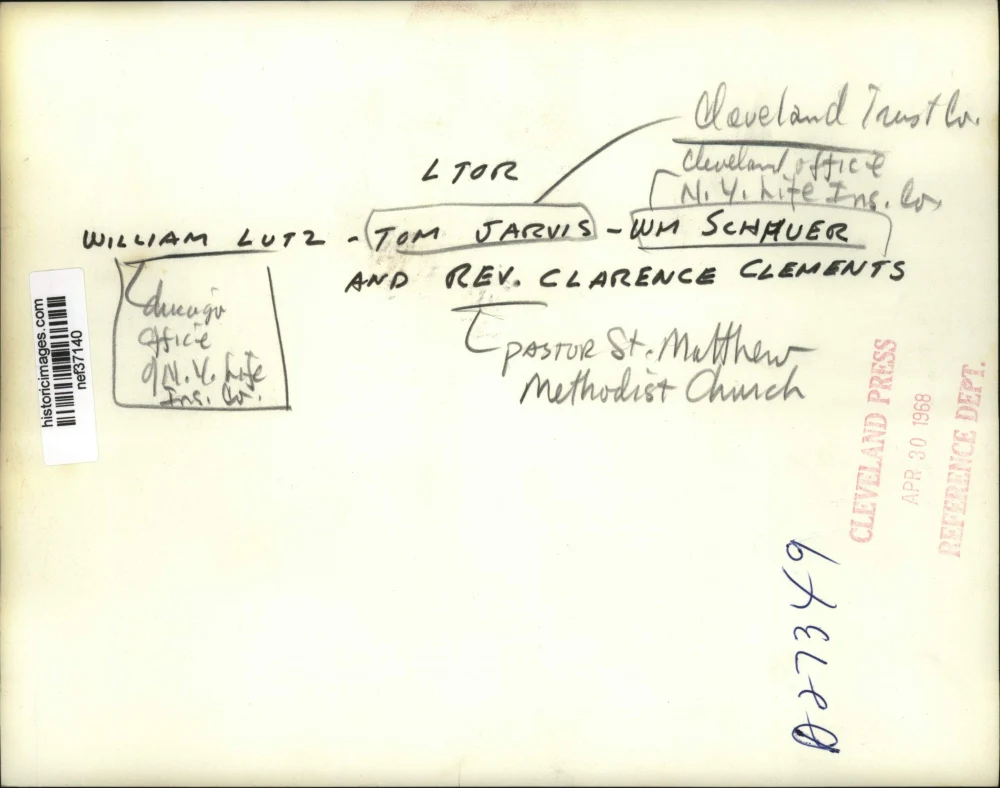 Cleveland Trust Co.
Cleveland office
N. Y. Life Ins. Co.
L TO R
WILLIAM LUTZ - TOM JARVIS - WM SCHAUER
AND REV. CLARENCE CLEMENTS
Chicago
office
of N. Y. Life
Ins. Co.
PASTOR St. Matthew
Methodist Church
historicimages.com
nef37140
CLEVELAND PRESS
APR 30 1968
REFERENCE DEPT.